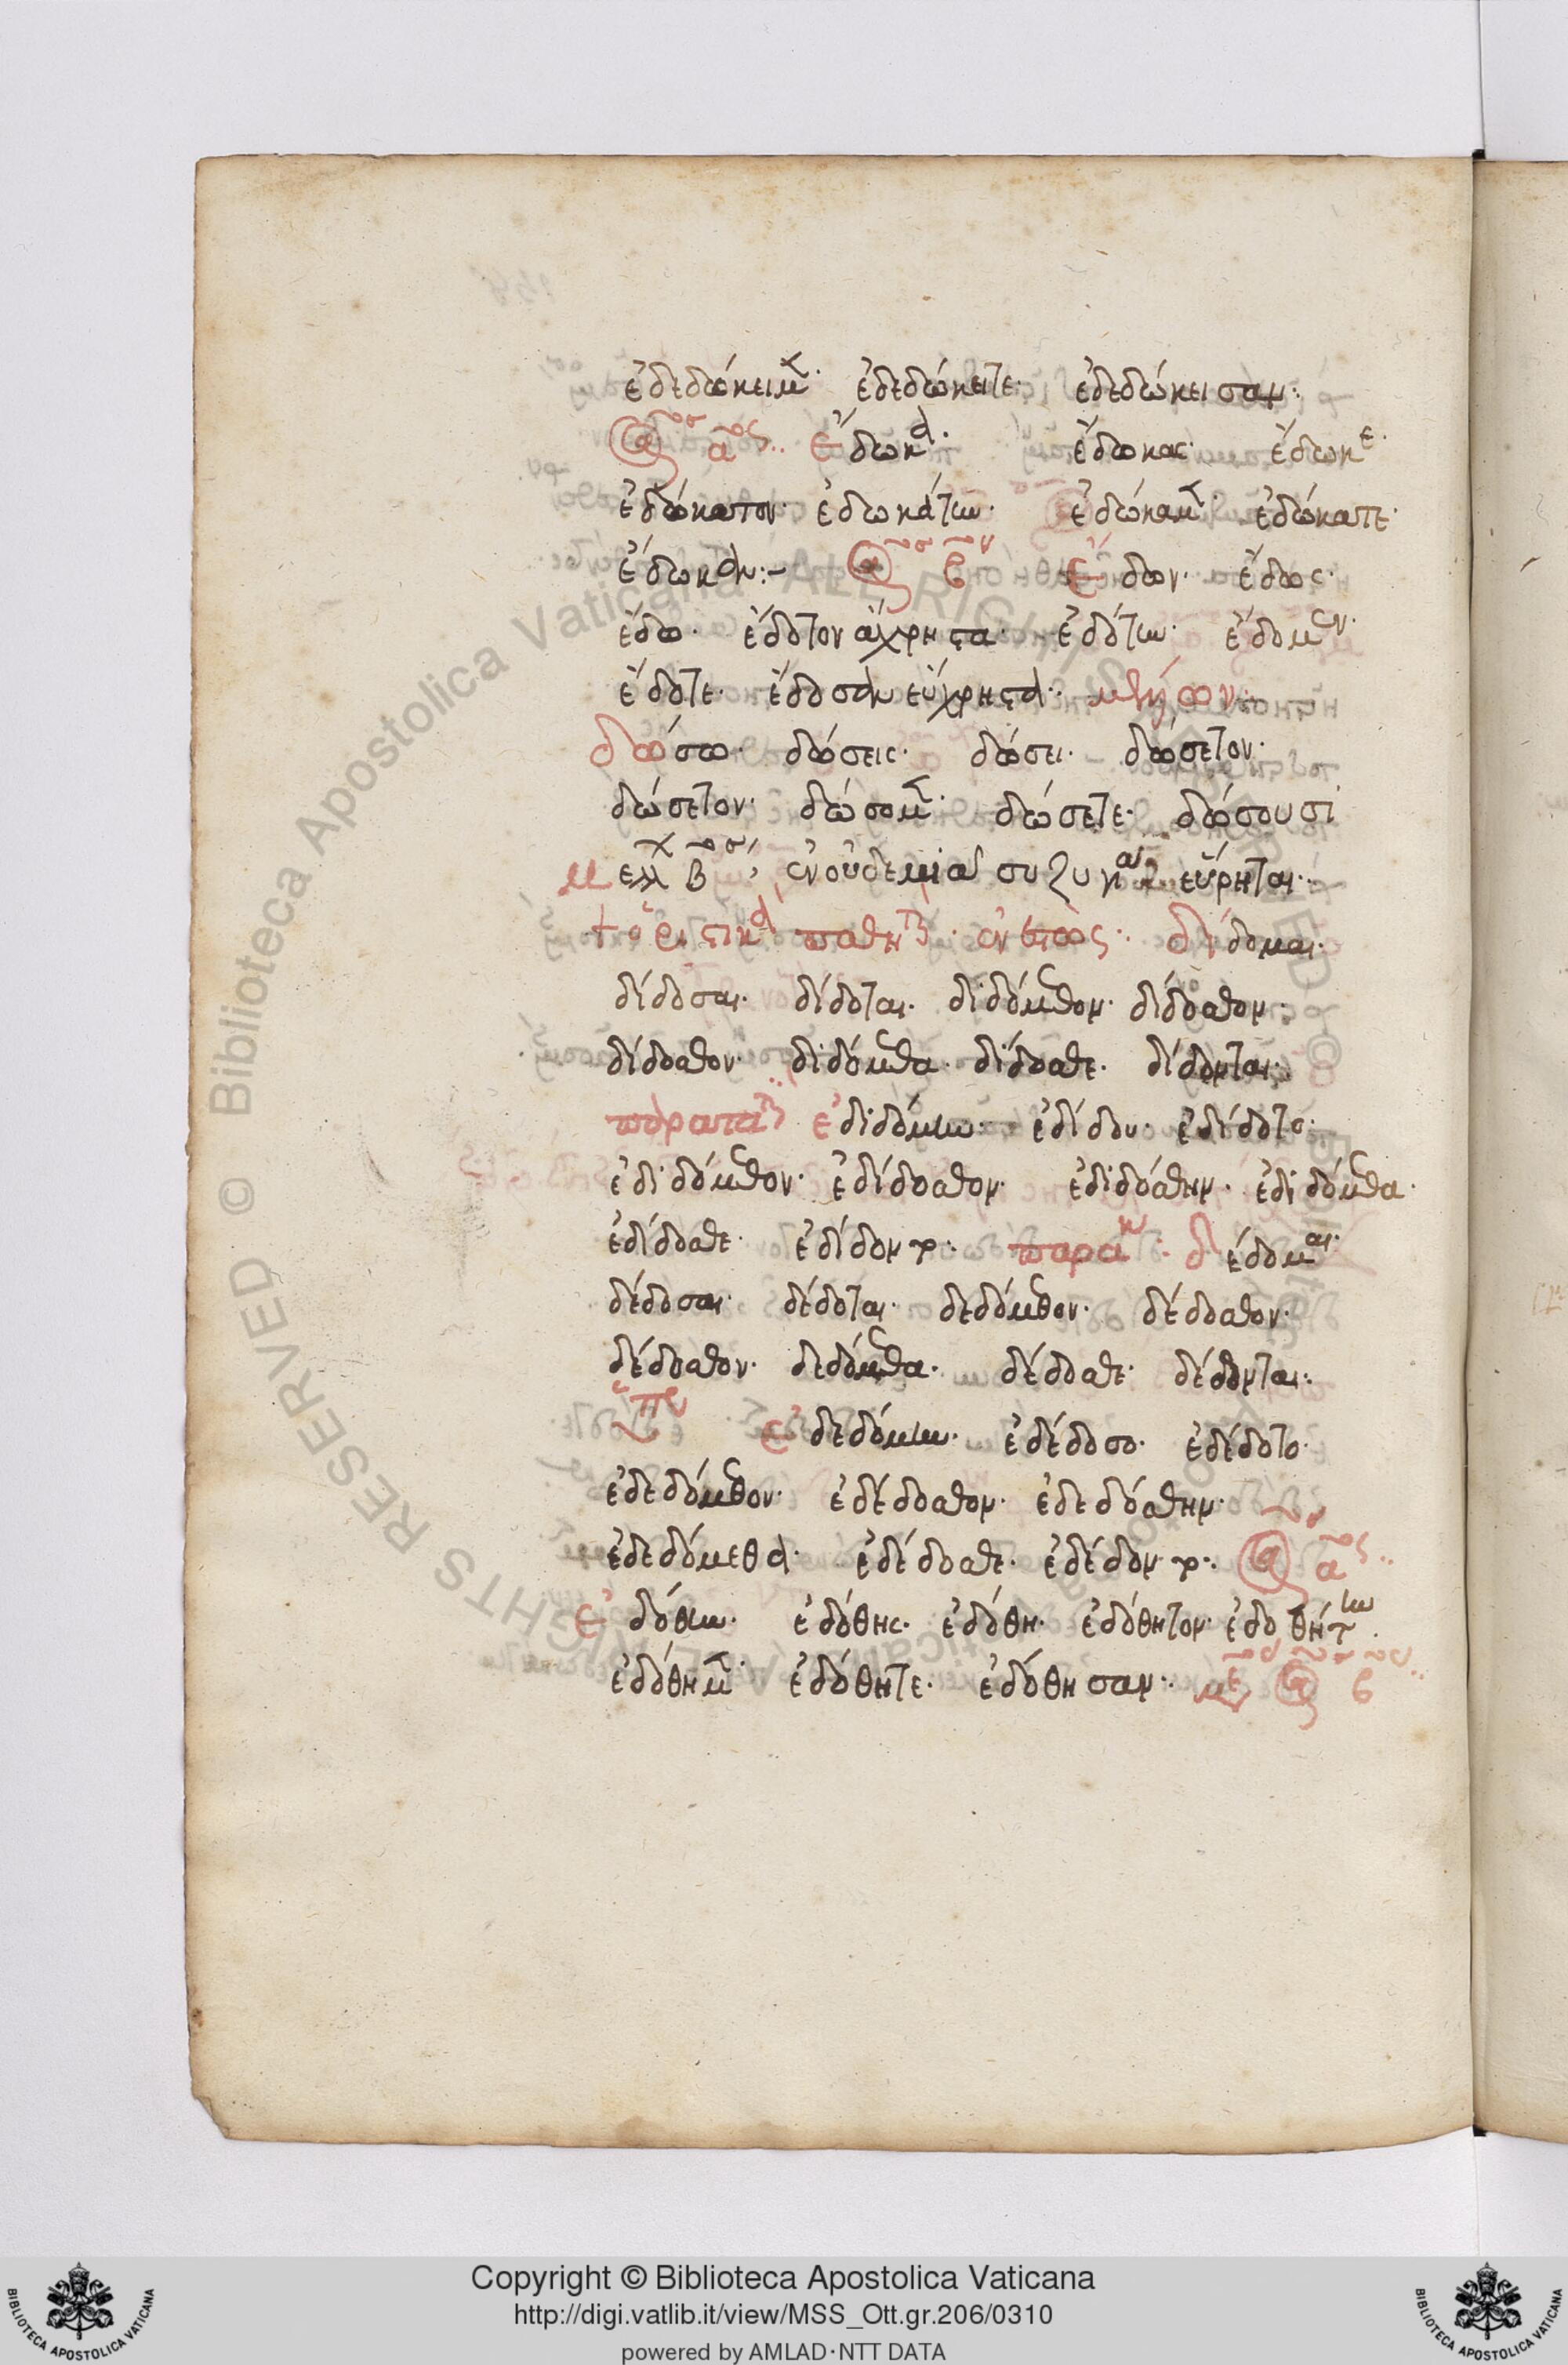 ἐδεδώκειμ̅ ἐδεδώκειτε· ἐδεδώκεισαν:
ἀορ α^ος· ἔδωκα· ἔδωκας· ἔδωκε·
ἐδώκατον· ἐδωκάτην· ἐδώκαμ̅· ἐδώκατε·
ἔδωκαν:– β ἔδων· ἔδως·
ἔδω· ἔδοτον ἄχρηστα· ἐδότην· ἔδομεν·
ἔδοτε· ἔδοσαν εὔχρηστα· μέλλων·
δώσω· δώσεις· δώσει· δώσετον·
δώσετον· δώσομ̅· δώσετε· δώσουσι
μελλ β ἐν οὐδεμία συζυγία εὕρηται·
+ ὁριστικὰ παθητ ἐνεστώς· δίδομαι·
δίδοσαι· δίδοται· διδόμεθον· δίδοσθον·
δίδοσθον· διδόμεθα· δίδοσθε· δίδονται·
παρατατ ἐδιδόμην· ἐδίδου· ἐδίδοτο·
ἐδιδόμεθον· ἐδίδοσθον· ἐδιδόσθην· ἐδιδόμεθα·
ἐδίδοσθε· ἐδίδοντο· παρακ· δέδομαι·
δέδοσαι· δέδοται· δεδόμεθον· δέδοσθον·
δέδοσθον· δεδόμεθα· δέδοσθε· δέδονται·
ὑπερ ἐδεδόμην· ἐδέδοσο· ἐδέδοτο·
ἐδεδόμεθον· ἐδέδοσθον· ἐδεδόσθην·
ἐδεδόμεθα· ἐδέδοσθε· ἐδέδοντο· ἀορ α^ος·
ἐδόθην· ἐδόθης· ἐδόθη· ἐδόθητον· ἐδοθήτην·
ἐδόθημ̅· ἐδόθητε· ἐδόθησαν· μέσ ἀορ β
Copyright © Biblioteca Apostolica Vaticana
http://digi.vatlib.it/view/MSS_Ott.gr.206/0310
powered by AMLAD·NTT DATA
BIBLIOTECA APOSTOLICA VATICANA
BIBLIOTECA APOSTOLICA VATICANA
© Biblioteca Apostolica Vaticana ALL RIGHTS RESERVED